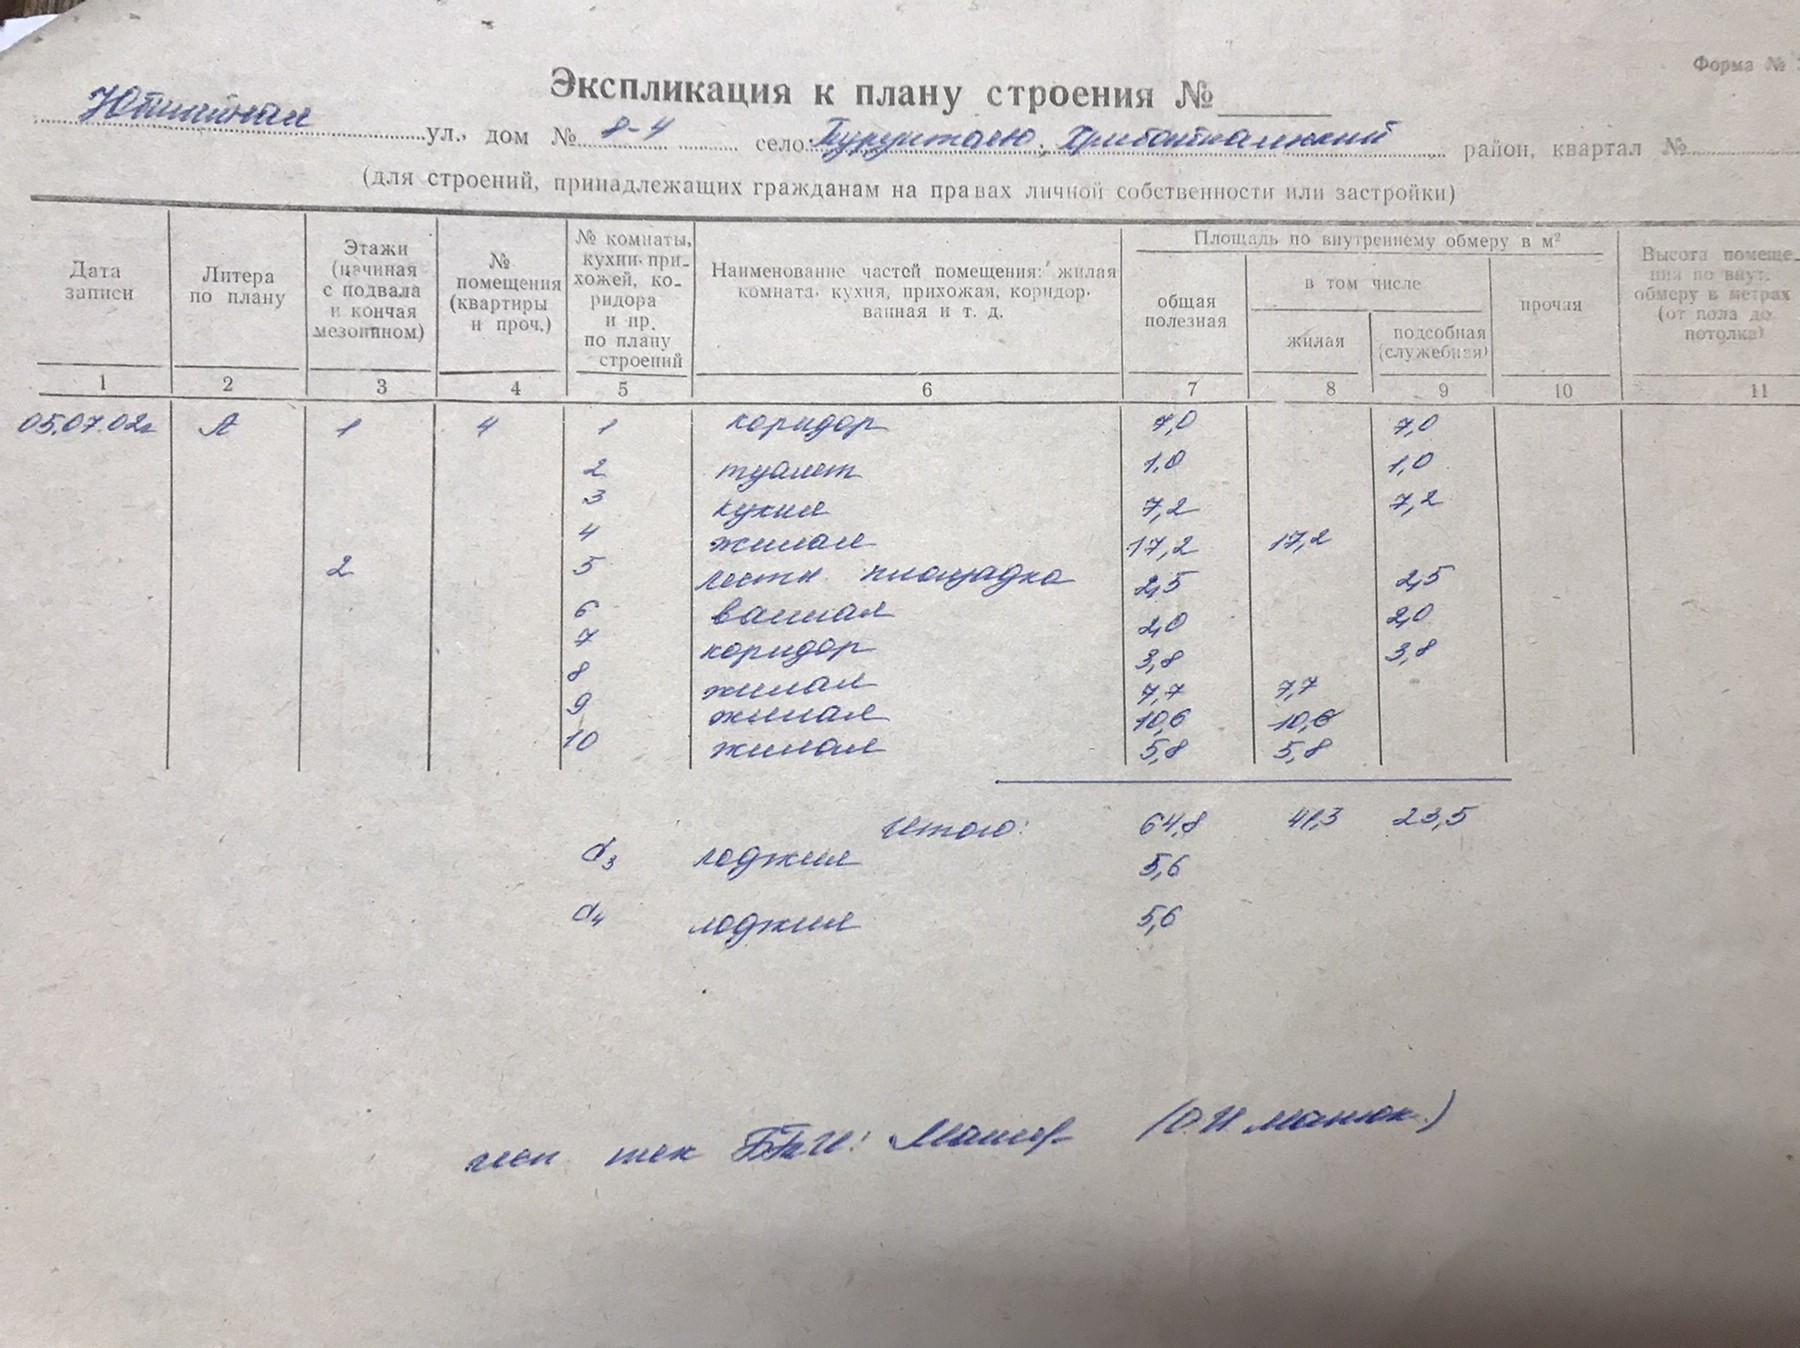 Форма №
Экспликация к плану строения №
ул., дом № 8-4 село: Турунтаево, Прибайкальский район, квартал №
(для строений, принадлежащих гражданам на правах личной собственности или застройки)
Дата записи | Литера по плану | Этажи (начиная с подвала и кончая мезонином) | № помещения (квартиры и проч.) | № комнаты, кухни, прихожей, коридора и пр. по плану строений | Наименование частей помещения: жилая комната, кухня, прихожая, коридор, ванная и т. д. | Площадь по внутреннему обмеру в м² | общая полезная | в том числе | жилая | подсобная (служебная) | прочая | Высота помещения по внут. обмеру в метрах (от пола до потолка)
1 2 3 4 5 6 7 8 9 10 11
05.07.02г А 1 4 1 коридор 7,0 7,0
2 туалет 1,0 1,0
3 кухня 7,2 7,2
4 жилая 17,2 17,2
2 5 лестн. площадка 2,5 2,5
6 ванная 2,0 2,0
7 коридор 3,8 3,8
8 жилая 7,7 7,7
9 жилая 10,6 10,6
10 жилая 5,8 5,8
Итого: 64,8 41,3 23,5
а3 лоджия 5,6
а4 лоджия 5,6
тех БТИ: